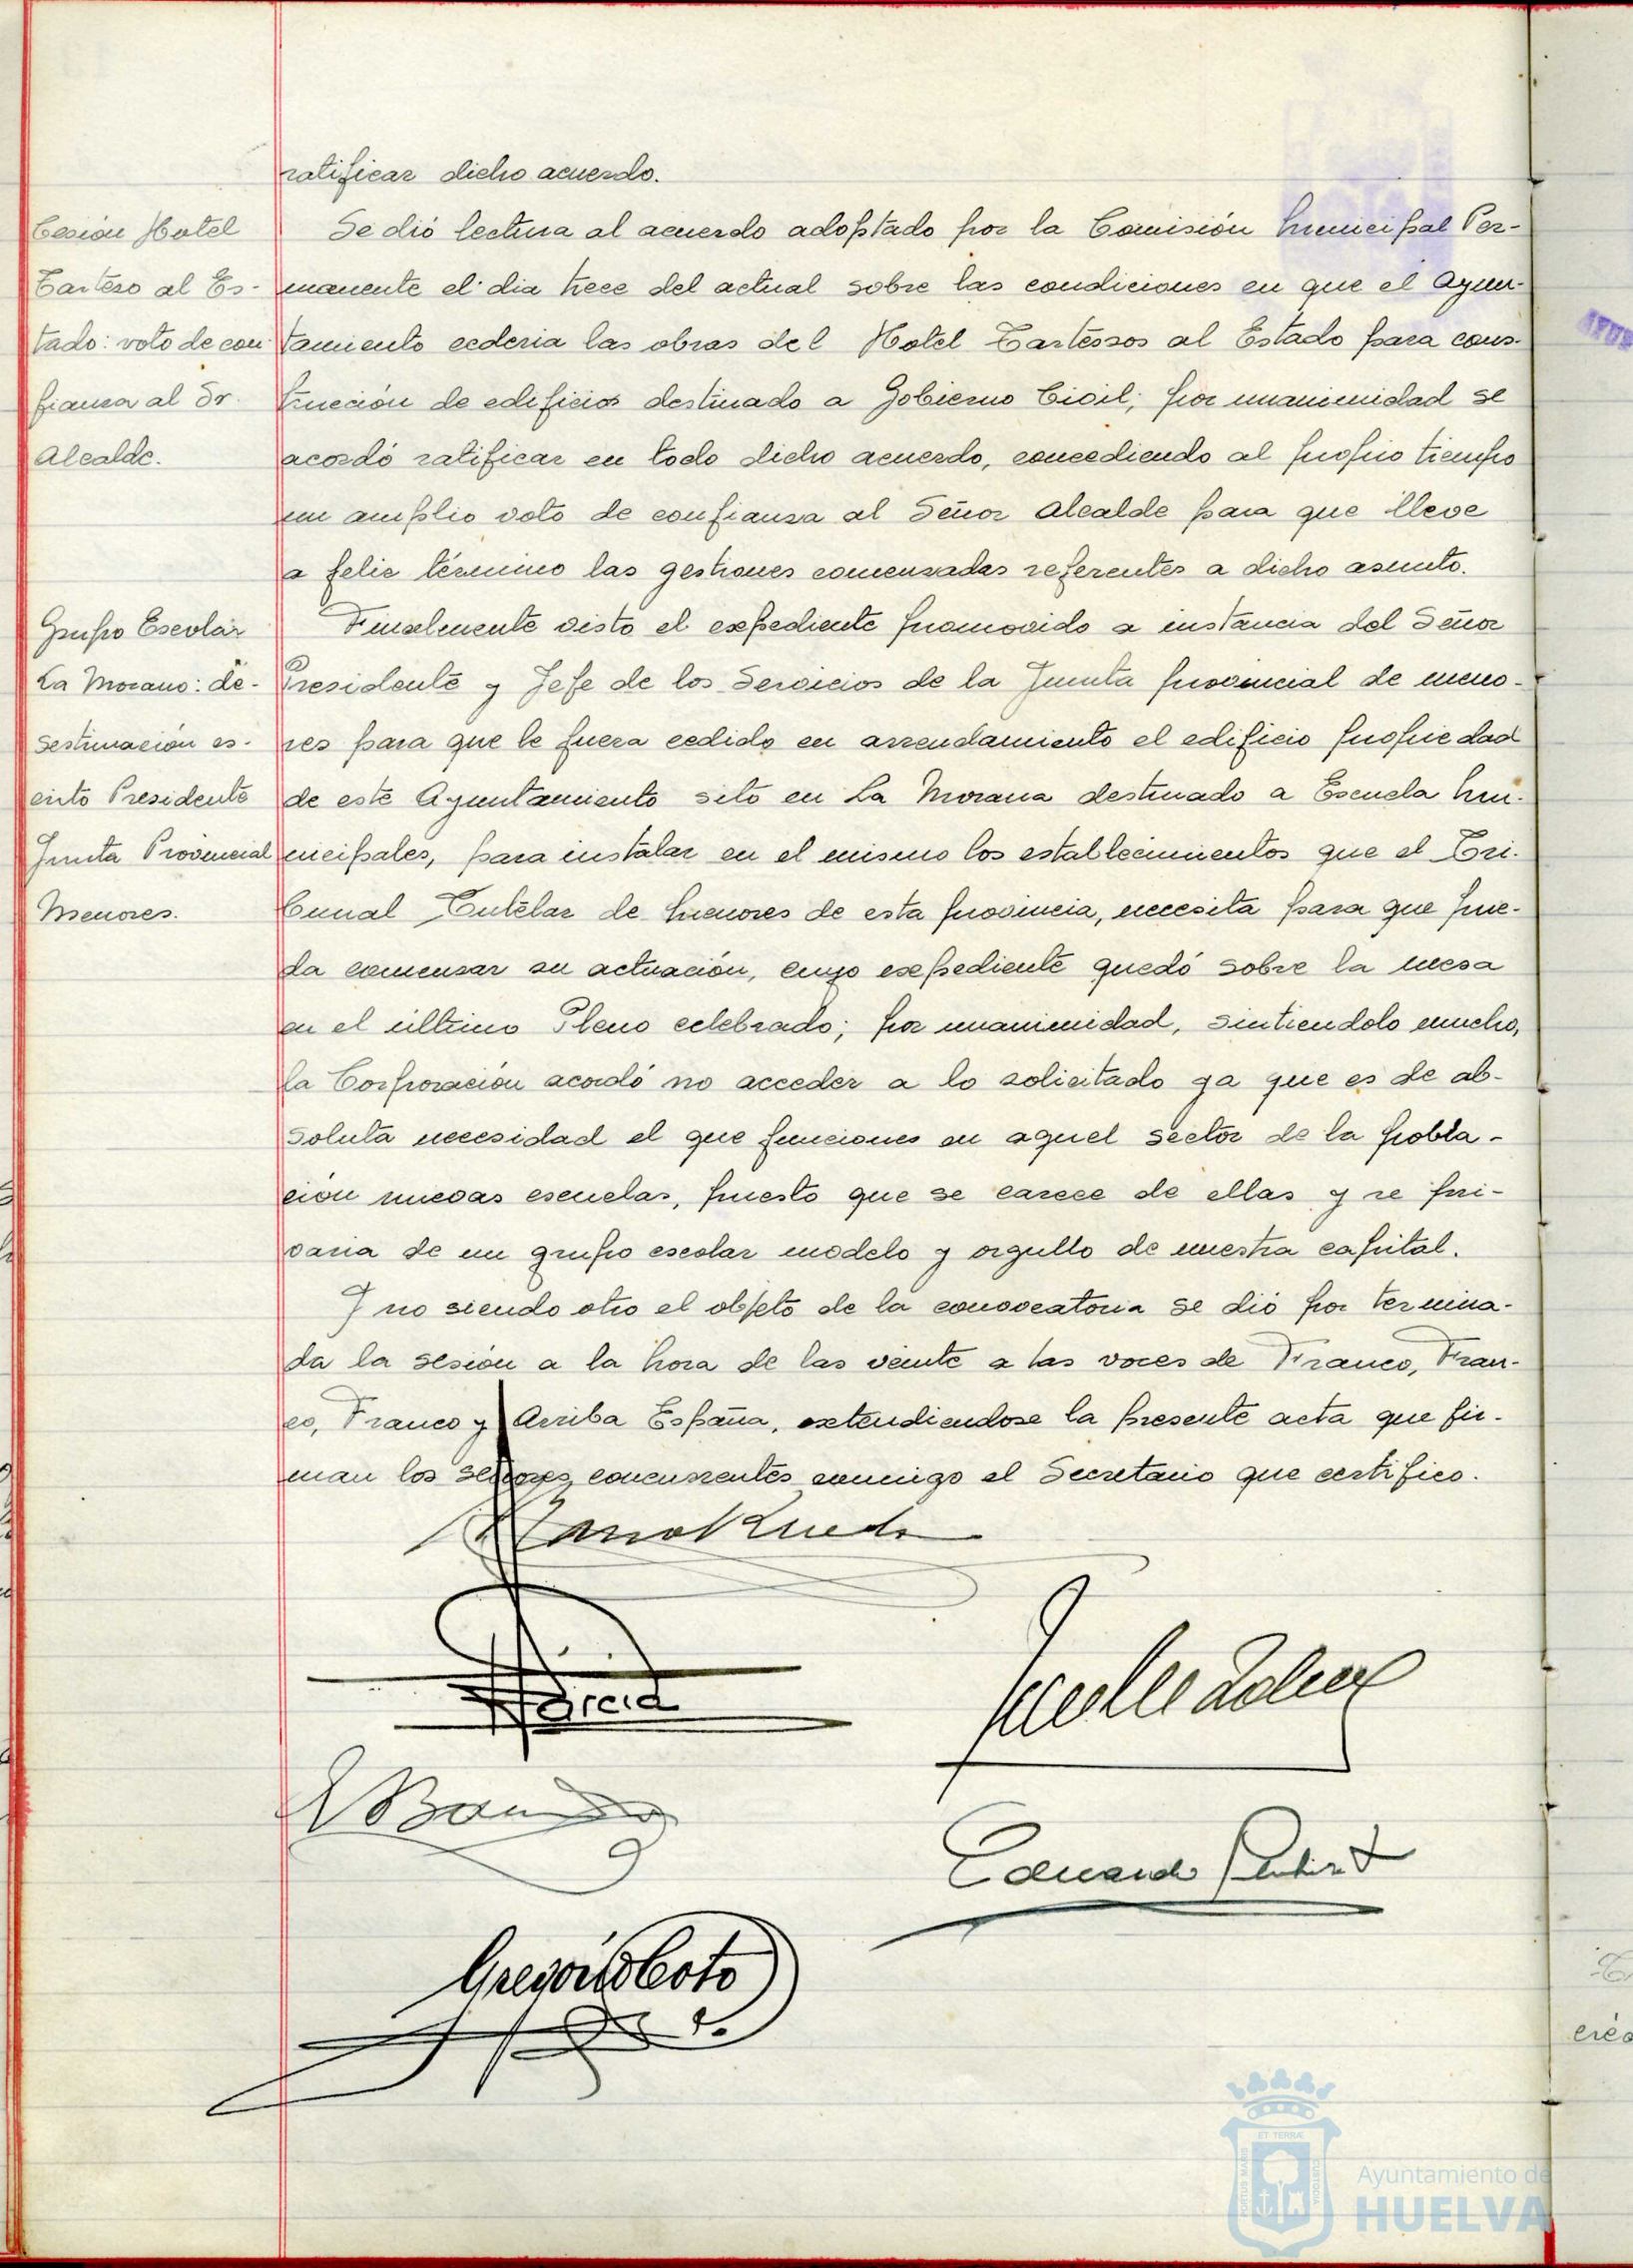 ratificar dicho acuerdo.
Cesión Hotel
Tarteso al Es-
tado: voto de con-
fianza al Sr.
Alcalde.
Se dió lectura al acuerdo adoptado por la Comisión Municipal Per-
manente el dia trece del actual sobre las condiciones en que el Ayun-
tamiento cederia las obras del Hotel Tartessos al Estado para cons-
trucción de edificios destinado a Gobierno Civil; por unanimidad se
acordó ratificar en todo dicho acuerdo, concediendo al propio tiempo
un amplio voto de confianza al Señor Alcalde para que lleve
a feliz término las gestiones comenzadas referentes a dicho asunto.
Grupo Escolar
La Morana: de-
sestimación es-
crito Presidente
Junta Provincial
Menores.
Finalmente visto el expediente promovido a instancia del Señor
Presidente y Jefe de los Servicios de la Junta provincial de meno-
res para que le fuera cedido en arrendamiento el edificio propiedad
de este Ayuntamiento sito en La Morana destinado a Escuela Mu-
nicipales, para instalar en el mismo los establecimientos que el Tri-
bunal Tutelar de Menores de esta provincia, necesita para que pue-
da comenzar su actuación, cuyo expediente quedó sobre la mesa
en el último Pleno celebrado; por unanimidad, sintiendolo mucho,
la Corporación acordó no acceder a lo solicitado ya que es de ab-
soluta necesidad el que funciones en aquel sector de la pobla-
ción nuevas escuelas, puesto que se carece de ellas y se pri-
varia de un grupo escolar modelo y orgullo de nuestra capital.
Y no siendo otro el objeto de la convocatoria se dió por termina-
da la sesión a la hora de las veinte a las voces de Franco, Fran-
co, Franco y Arriba España, extendiendose la presente acta que fir-
man los señores concurrentes conmigo el Secretario que certifico.
García
Eduardo
Gregorio Coto
Ayuntamiento de
HUELVA